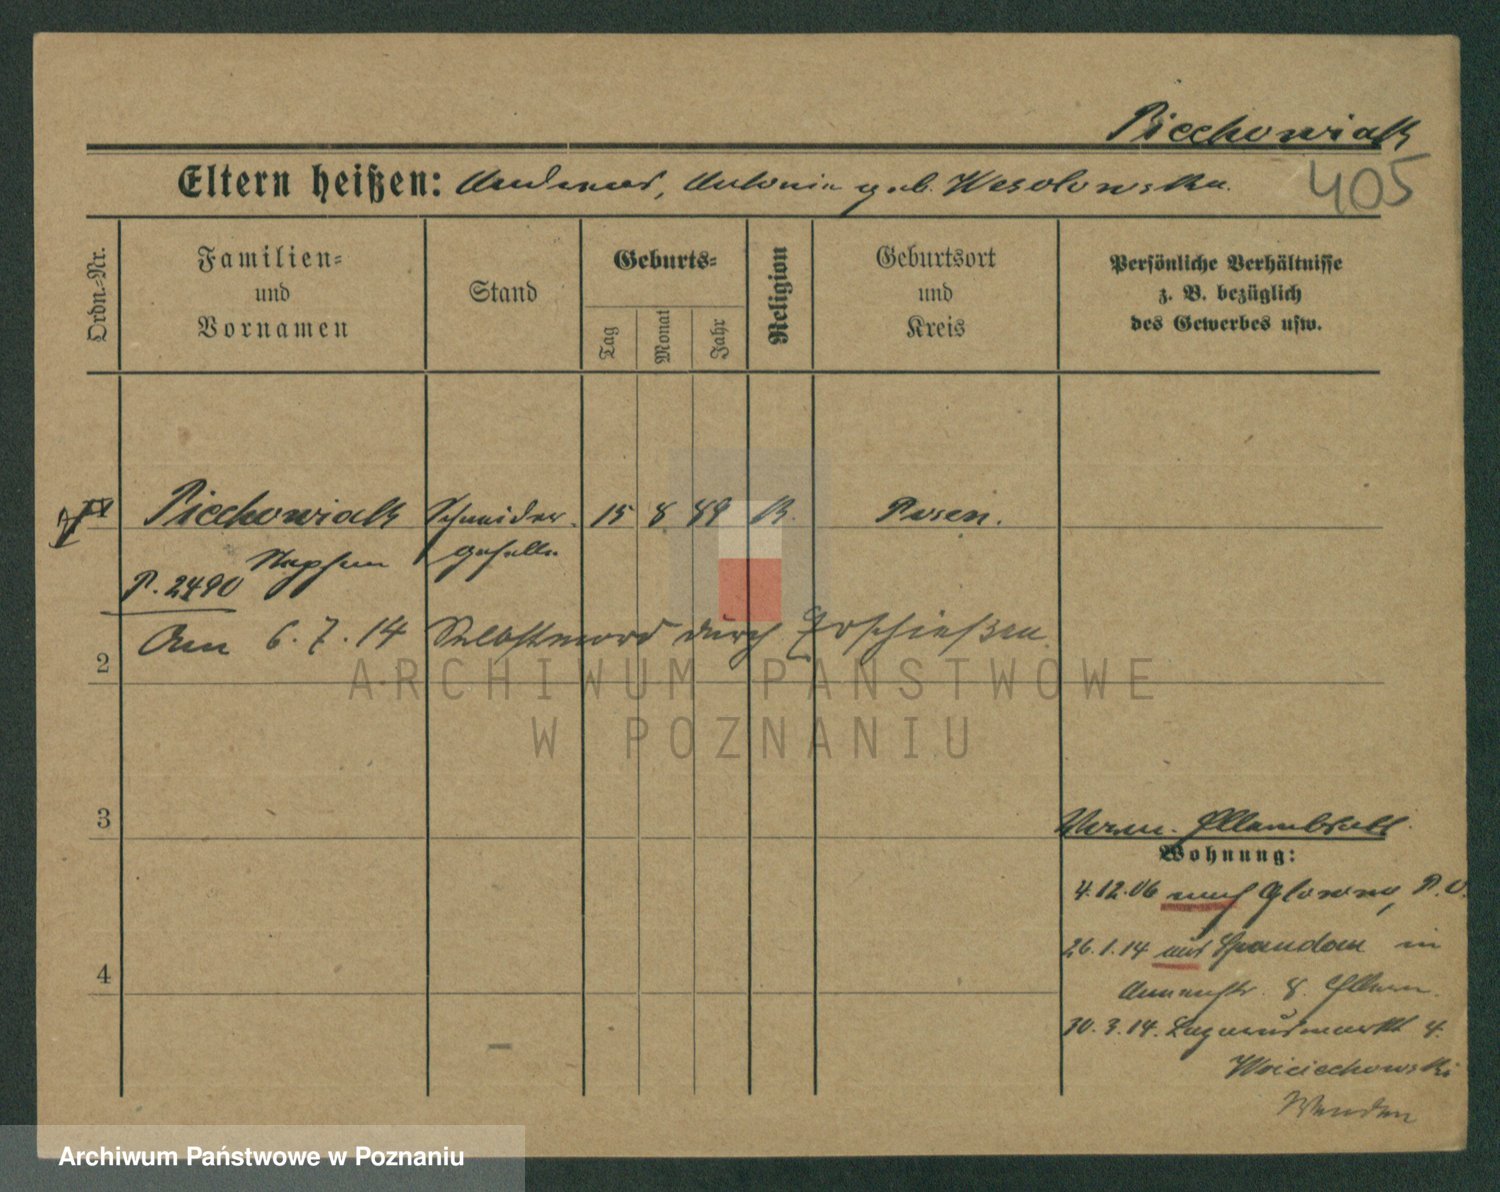 Piechowiak
405
Eltern heißen: Andreas, Antonia geb. Wesolowska.
Ordn.-Nr.
Familien-
und
Vornamen
Stand
Geburts-
Tag
Monat
Jahr
Religion
Geburtsort
und
Kreis
Persönliche Verhältnisse
z. B. bezüglich
des Gewerbes usw.
Piechowiak Schneider- 15 8 89 K. Posen.
Stephan geselle
P. 2490
Am 6.7.14 Selbstmord durch Erschießen.
2
ARCHIWUM PAŃSTWOWE
W POZNANIU
3
Wohnung:
4.12.06 nach Glowno, P. O.
26.1.14 aus Spandau in
4
8. Eltern.
30.3.14. Lazarusmarkt 4.
Woiciechowski
Archiwum Państwowe w Poznaniu